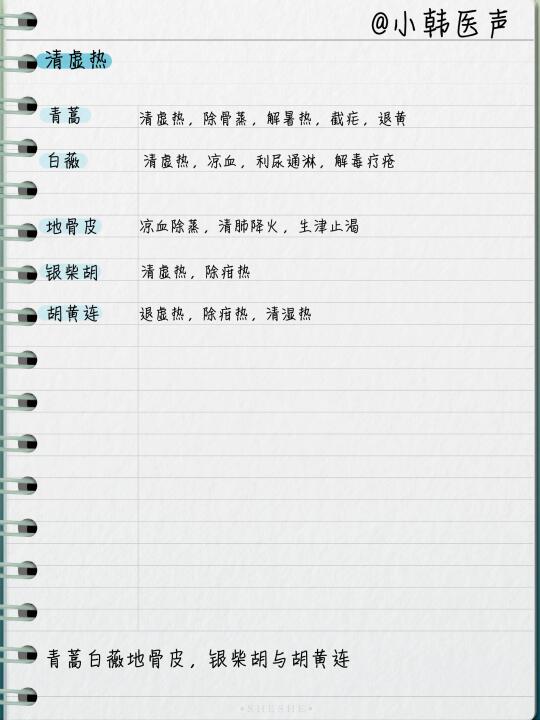 @小韩医声
清虚热
青蒿 清虚热，除骨蒸，解暑热，截疟，退黄
白薇 清虚热，凉血，利尿通淋，解毒疗疮
地骨皮 凉血除蒸，清肺降火，生津止渴
银柴胡 清虚热，除疳热
胡黄连 退虚热，除疳热，清湿热
青蒿白薇地骨皮，银柴胡与胡黄连
•SHESHE•